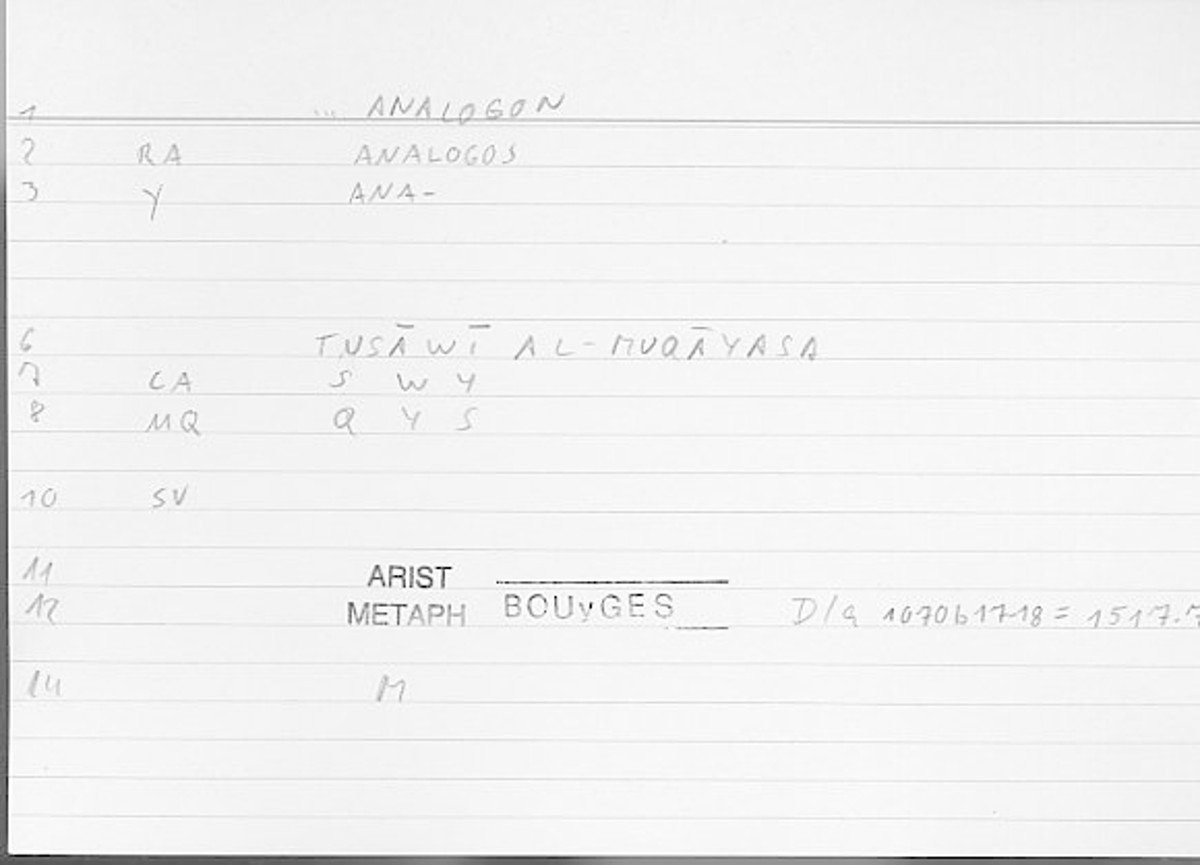 1 ... ANALOGON
2 RA ANALOGOS
3 Y ANA-
6 TUSĀWĪ AL-MUQĀYASA
7 CA S W Y
8 MQ Q Y S
10 SV
11 ARIST
12 METAPH BOUyGES 1070b17-18 = 1517.7
14 M